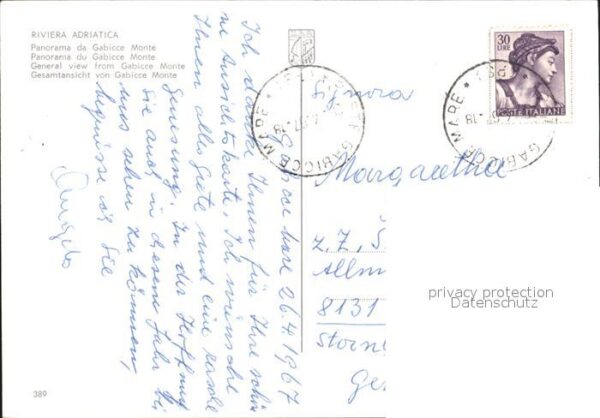 RIVIERA ADRIATICA
Panorama da Gabicce Monte
Panorama du Gabicce Monte
General view from Gabicce Monte
Gesamtansicht von Gabicce Monte
Gabicce mare 26.4.1967
Ich danke Ihnen für Ihre schö
ne Ansichtskarte. Ich wünsche
Ihnen alles Gute und eine rasche
Genesung. In der Hoffnung
Sie auch in diesem Jahr bei
uns sehen zu können,
Sie
Angelo
30
LIRE
POSTE ITALIANE
GABICCE MARE
GABICCE MARE
Signora
Margarethe
z. Z. S
Allm
8131
Ge
privacy protection
Datenschutz
389